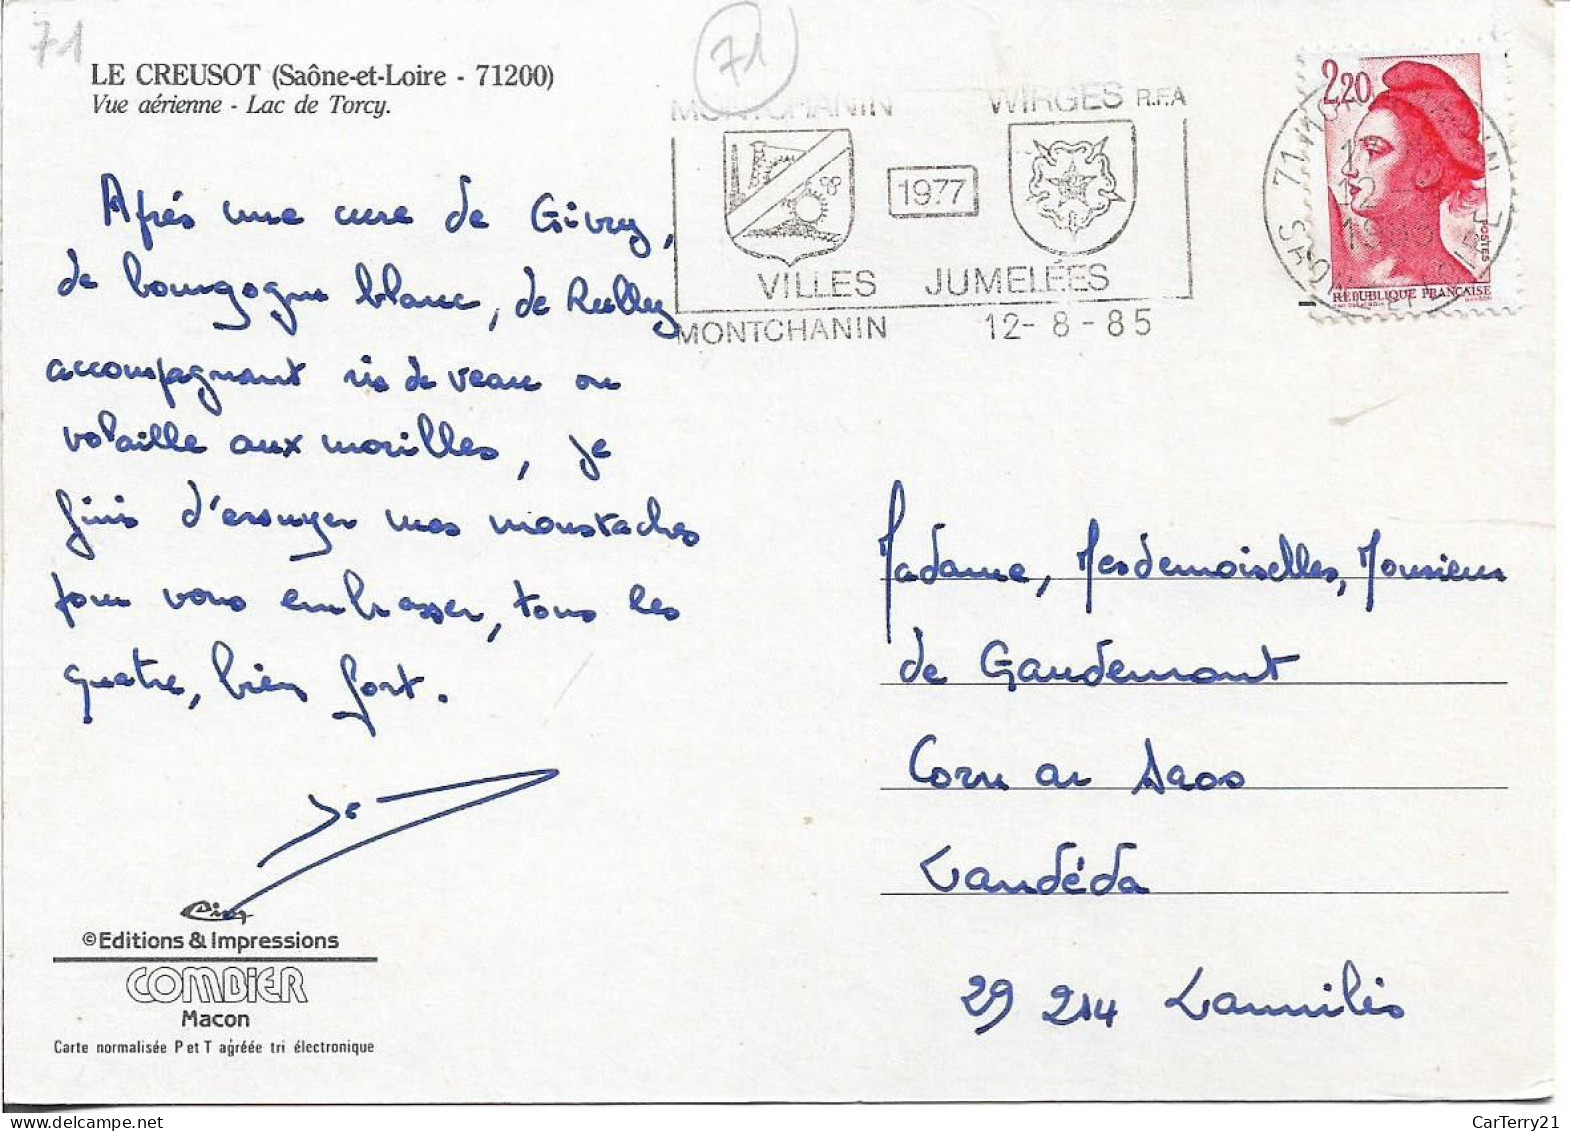 71
71
LE CREUSOT (Saône-et-Loire - 71200)
Vue aérienne - Lac de Torcy.
MONTCHANIN WIRGES R.F.A
1977
VILLES JUMELÉES
MONTCHANIN 12-8-85
2,20
POSTES
REPUBLIQUE FRANÇAISE
Après une cure de Givry,
de bourgogne blanc, de Rully
accompagnant ris de veau ou
volaille aux morilles, je
finis d'essuyer mes moustaches
pour vous embrasser, tous les
quatre, bien fort.
Madame, Mesdemoiselles, Monsieur
de Gaudemont
Corn ar
Landéda
29 214 Lannilis
Cim
©Editions & Impressions
COMBIER
Macon
Carte normalisée P et T agréée tri électronique
CarTerry21